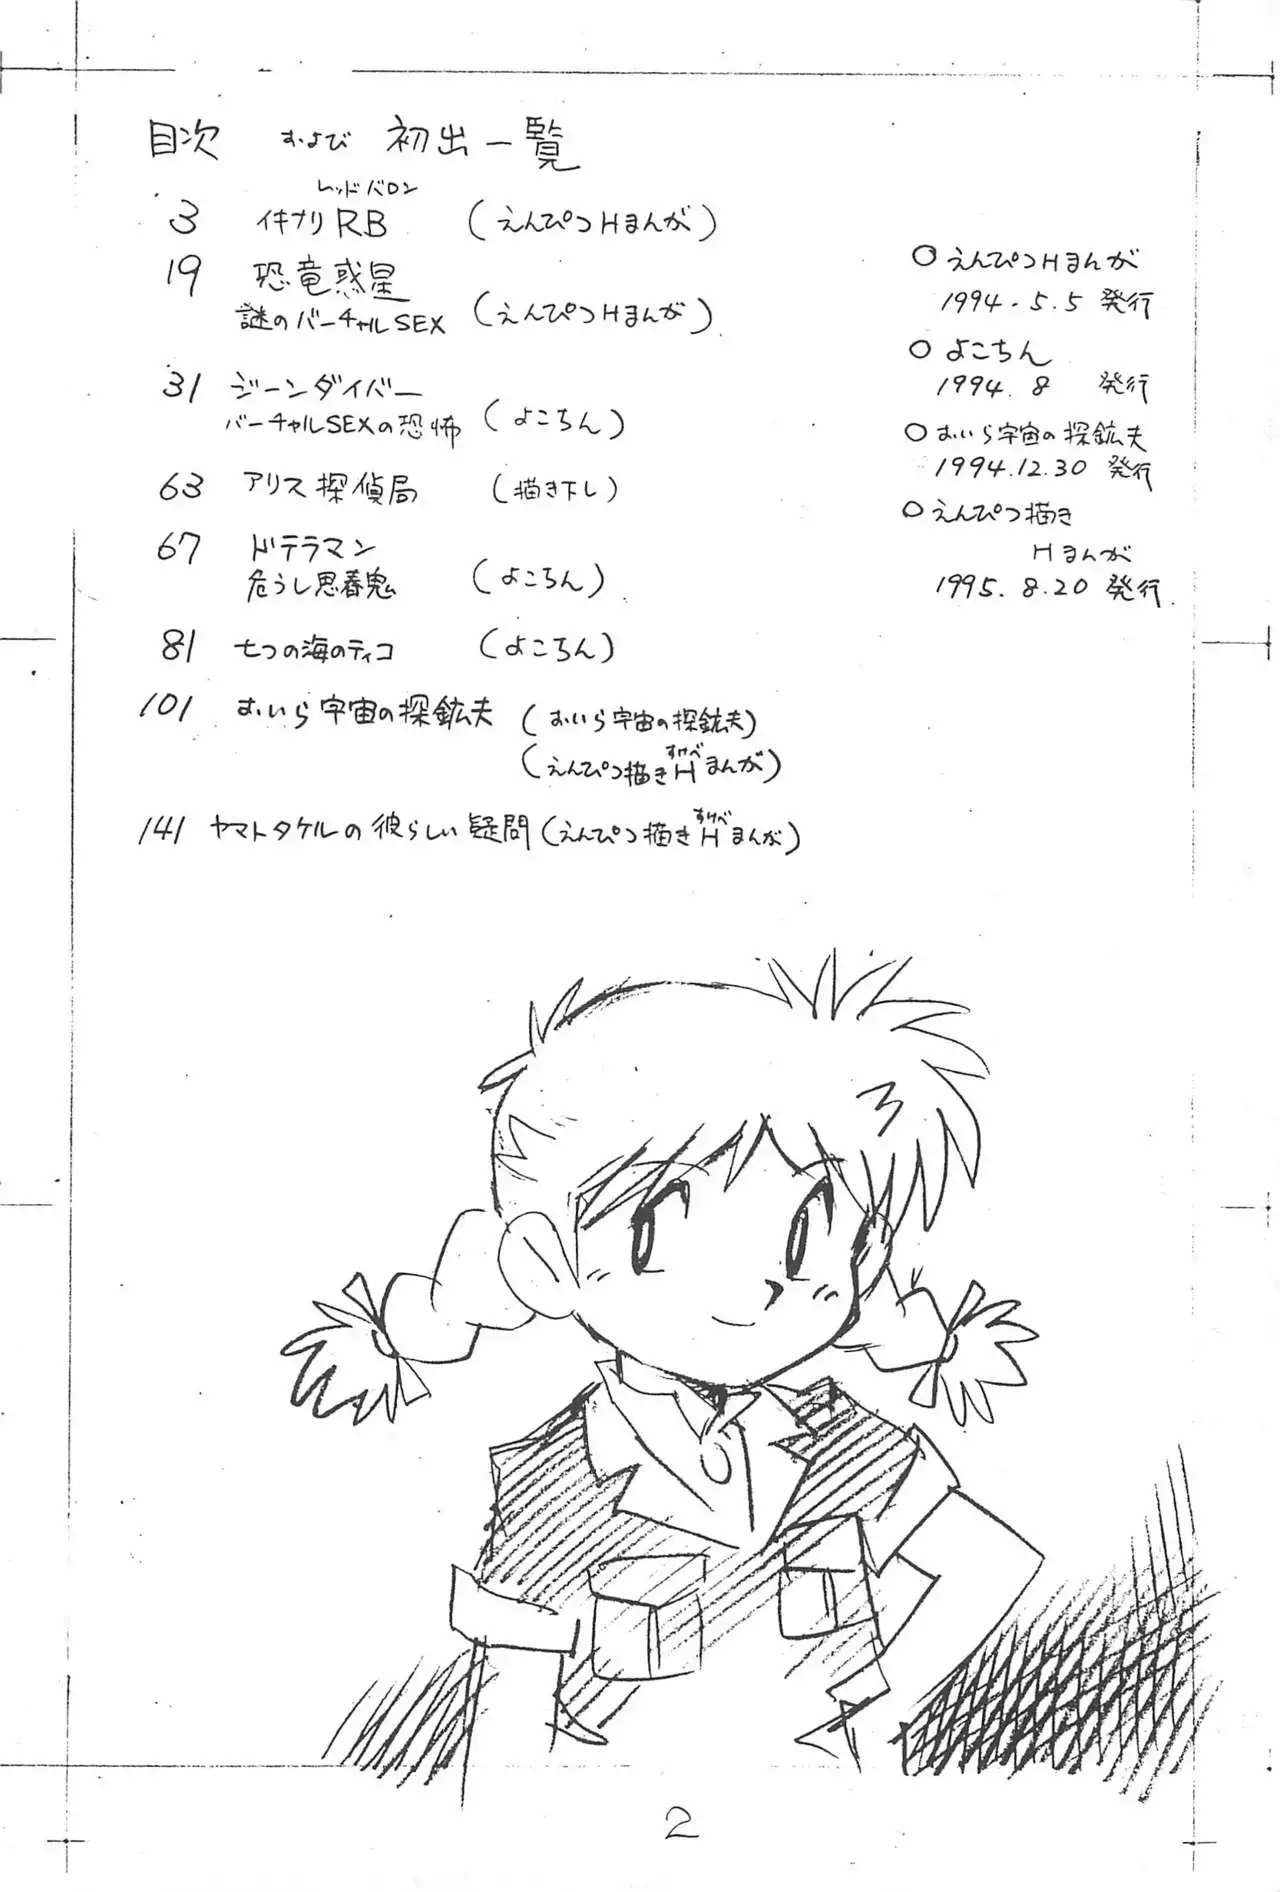 目次 および 初出一覧
レッドバロン
3 イキナリRB (えんぴつHまんが)
19 恐竜惑星
謎のバーチャルSEX (えんぴつHまんが)
31 ジーンダイバー
バーチャルSEXの恐怖 (よこちん)
63 アリス探偵局 (描き下し)
67 ドテラマン
危うし思春鬼 (よこちん)
81 七つの海のティコ (よこちん)
101 おいら宇宙の探鉱夫 (おいら宇宙の探鉱夫)
すけべ
(えんぴつ描きHまんが)
すけべ
141 ヤマトタケルの彼らしい疑問 (えんぴつ描きHまんが)
○ えんぴつHまんが
1994.5.5 発行
○ よこちん
1994.8 発行
○ おいら宇宙の探鉱夫
1994.12.30 発行
○ えんぴつ描き
Hまんが
1995.8.20 発行
2